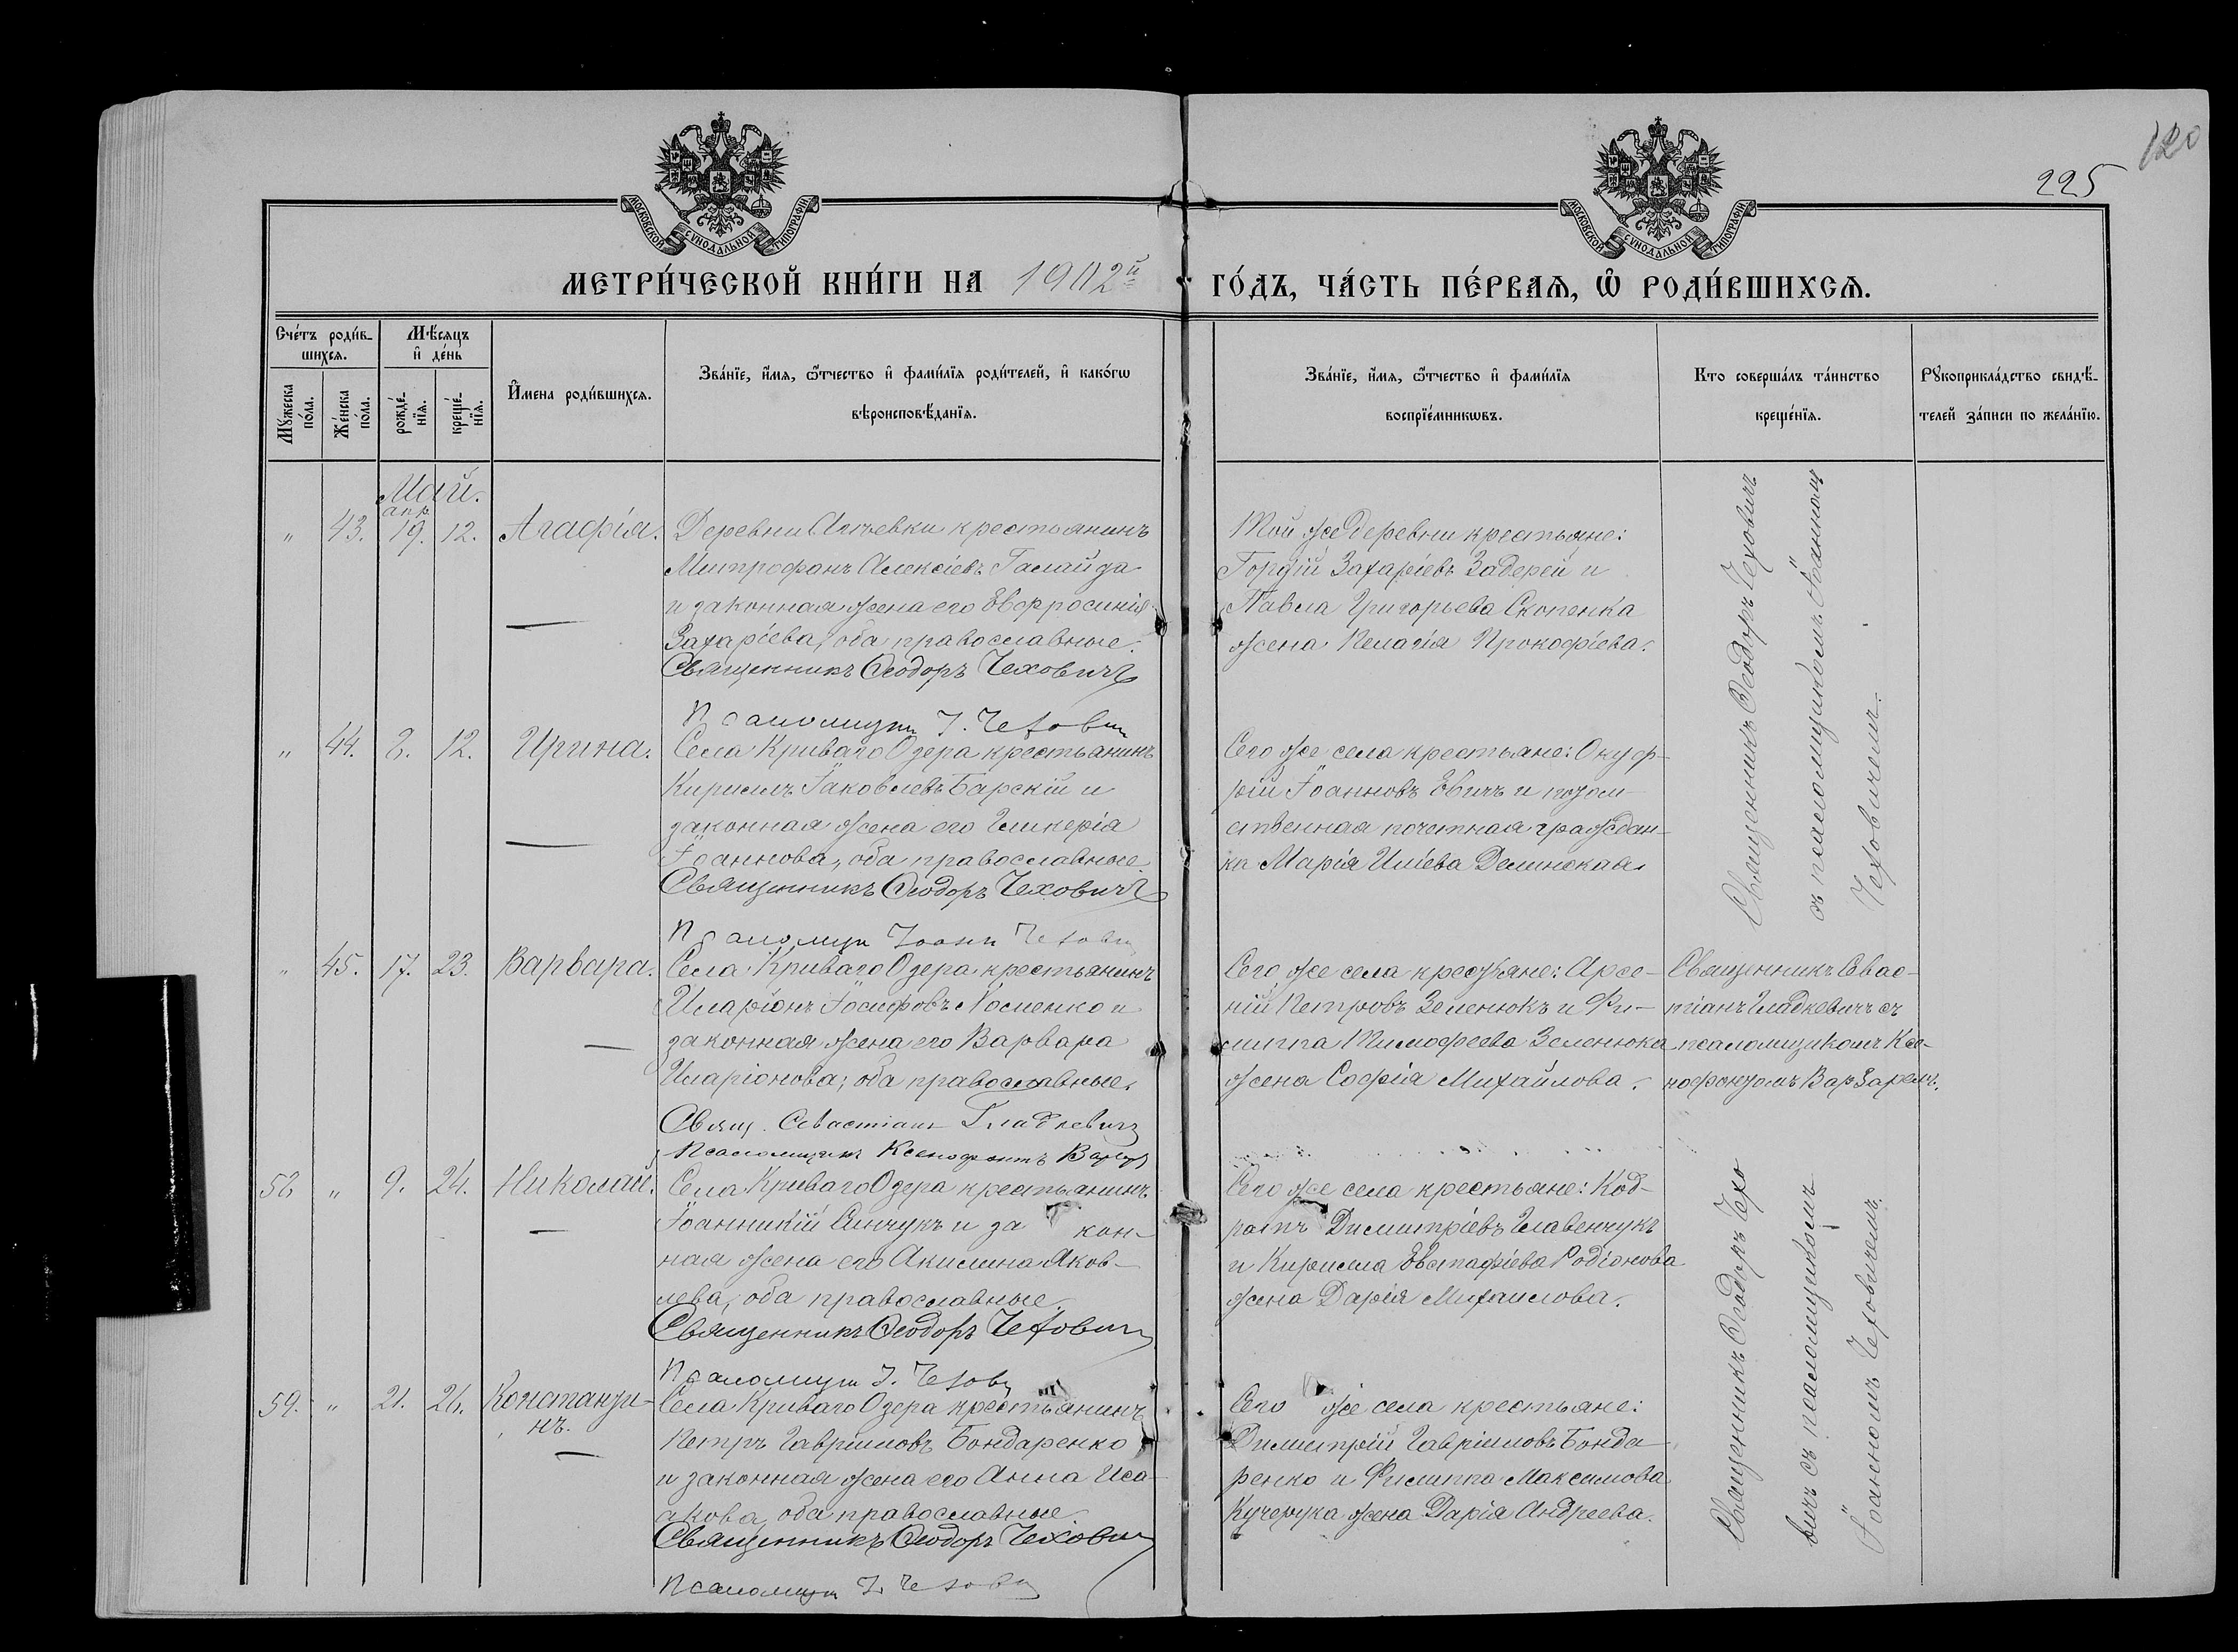 120
225
МОСКОВСКОЙ СѴНОДАЛЬНОЙ ТИПОГРАФІИ
МОСКОВСКОЙ СѴНОДАЛЬНОЙ ТИПОГРАФІИ
МЕТРИ́ЧЕСКОЙ КНИ́ГИ НА 1902й ГО́ДЪ, ЧА́СТЬ ПЕ́РВАѦ, Ѽ РОДИ́ВШИХСѦ.
Сче́тъ роди́в-
шихсѧ.
Мѣ́сѧцъ
и҆ де́нь
Мꙋ́жеска
по́ла.
Же́нска
по́ла.
рожде́-
нїѧ.
креще́-
нїѧ.
И҆мена роди́вшихсѧ.
Зва́нїе, и҆́мѧ, ѻ҆́тчество и҆ фами́лїѧ роди́телей, и҆ како́гѡ
вѣроисповѣ́данїѧ.
Зва́нїе, и҆́мѧ, ѻ҆́тчество и҆ фами́лїѧ
воспрїе́мникѡвъ.
Кто соверша́лъ та́инство
креще́нїѧ.
Рꙋкоприкла́дство свидѣ́-
телей за́писи по жела́нїю.
Май.
апр.
" 43. 19. 12. Агафія. Деревни крестьянинъ
Митрофанъ Алексіевъ Галайда
и законная жена его Евфросинія
Захаріева, оба православные.
Священникъ Ѳеодоръ Чеховичъ
Псаломщ I. Чехович
Той же деревни крестьяне:
Гордій Захаріевъ Задерей и
Павла Григорьева Скопенка
жена Пелагія Прокофіева.
Священникъ Ѳеодоръ Чеховичъ
съ псаломщикомъ Іоанномъ
Чеховичемъ.
" 44. 2. 12. Ирина. Села Криваго Озера крестьянинъ
Кириллъ Іаковлевъ Барскій и
законная жена его Гликерія
Іоаннова, оба православные
Священникъ Ѳеодоръ Чеховичъ
Псаломщ Іоанн Чехович
Сего же села крестьяне: Онуф-
рій Іоанновъ и потом-
ственная почетная граждан-
ка Марія Иліева
" 45. 17. 23. Варвара. Села Криваго Озера крестьянинъ
Иларіонъ Іосифовъ Носпенко и
законная жена его Варвара
Иларіонова; оба православные.
Свящ. Севастіанъ Гладкевичъ
Псаломщикъ Ксенофонтъ Варз
Сего же села крестьяне: Арсе-
ній Петровъ Зеленюкъ и Фи-
липпа Тимофеева Зеленюка
жена Софія Михайлова.
Священникъ Севас-
тіанъ Гладкевичъ съ
псаломщикомъ Ксе-
нофонтомъ Варзаремъ.
58 " 9. 24. Николай. Села Криваго Озера крестьянинъ
Іоанникій Янчукъ и за кон-
ная жена его Акилина Яков-
лева, оба православные.
Священникъ Ѳеодоръ Чехович
Псаломщ I. Чехов
Сего же села крестьяне: Код-
ратъ Димитріевъ Главенчукъ
и Кирилла Евстафіева Родіонова
жена Дарія Михаилова.
Священникъ Ѳеодоръ Чехо
вичъ съ псаломщикомъ
Іоанномъ Чеховичемъ.
59. " 21. 26. Константи-
нъ.
Села Криваго Озера крестьянинъ
Петръ Гавріиловъ Бондаренко
и законная жена его Анна Иса-
акова, оба православные
Священникъ Ѳеодоръ Чехович
Псаломщ I. Чехов
Сего же села крестьяне:
Димитрій Гавріиловъ Бонда-
ренко и Филиппа Максимова
Кучерука жена Дарія Андреева.